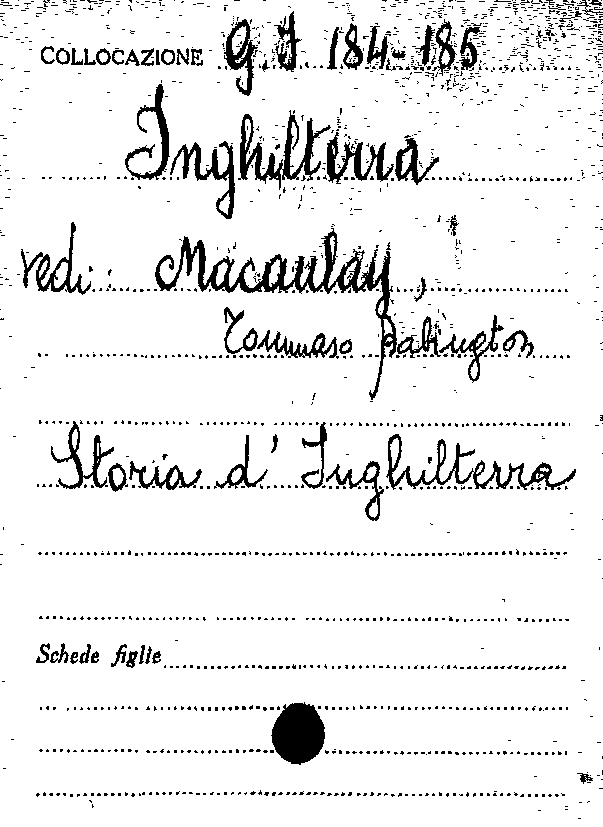 COLLOCAZIONE G. I 184-185
Inghilterra
vedi: Macaulay,
Tommaso Babington
Storia d' Inghilterra
Schede figlie